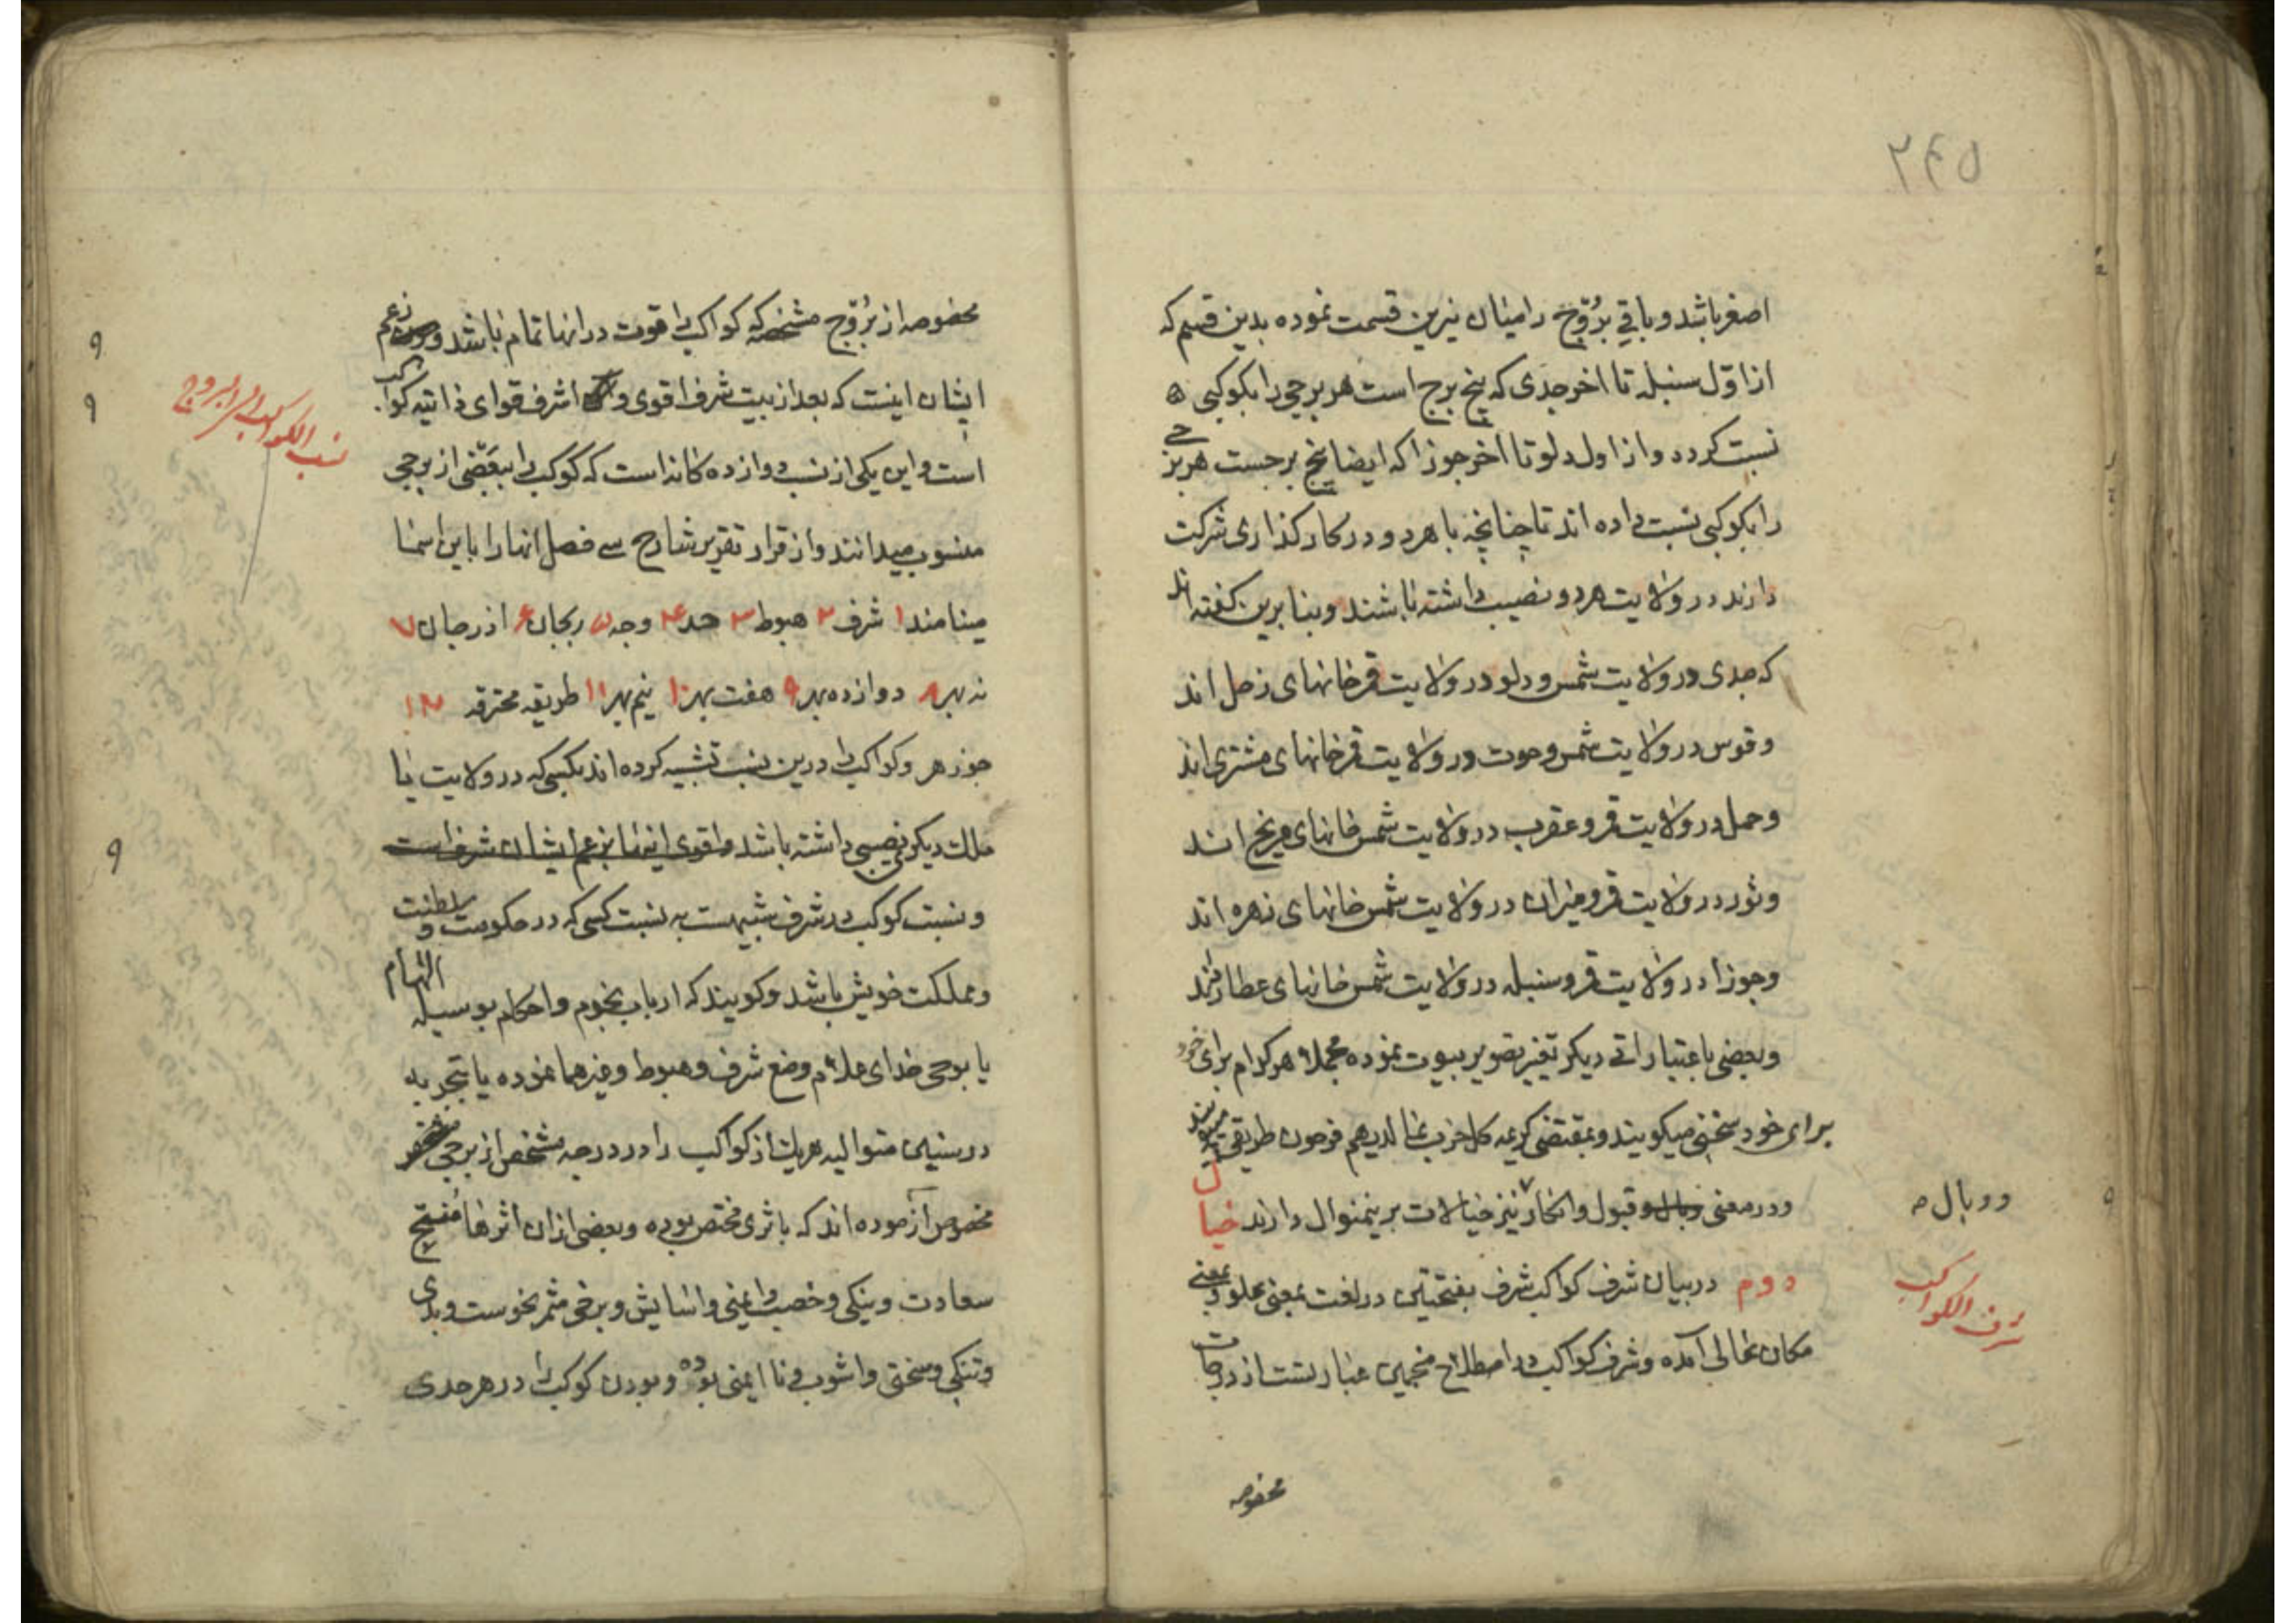 ۲۴۵
اصغر باشد و باقی بروج را میان نیرین قسمت نموده بدین قسم که
از اوّل سنبله تا اخر جدی که پنج برج است هر برجی را بکوکبی
نسبت کردد و از اول دلو تا اخر جوزا که ایضا پنج برجست هر برجی
را بکوکبی نسبت داده اند تا چنانچه با هر دو در کار کذاری شرکت
دارند در ولایت هر دو نصیب داشته باشند و بنا برین کفته اند
که جدی در ولایت شمس و دلو در ولایت قمر خانهای زحل اند
و قوس در ولایت شمس و حوت در ولایت قمر خانهای مشتری اند
و حمل در ولایت قمر و عقرب در ولایت شمس خانهای مریخ اند
و ثور در ولایت قمر و میزان در ولایت شمس خانهای زهره اند
و جوزا در ولایت قمر و سنبله در ولایت شمس خانهای عطاردند
و بعضی باعتباراتی دیکر تغیر تصویر بیوت نموده مجملا هر کدام برای خود
برای خود سخنی میکویند و بمقتضی کریمه کل حزب بما لدیهم فرحون طریقی
و در معنی وبال و قبول و انکار نیز خیالات برینمنوال دارند خیال
ووبال
دوم در بیان شرف کواکب شرف بفتحتین در لغت بمعنی علو و بمعنی
شرف الکواکب
مکان عالی آمده و شرف کواکب در اصطلاح منجمین عبارتست از درجات
مخصوصه
مخصوصه از بروج مشخصه که کواکب را قوت در انها تمام باشد و زعم
ایشان اینست که بعد از بیت شرف اقوی و اشرف قوای ذاتیه کواکب
نسب الکواکب الی البروج
است و این یکی از نسب دوازده کانه است که کوکب را ببعضی از برجی
منسوب میدانند و از قرار تقریر شارح سی فصل انها را باین اسما
مینامند ۱ شرف ۲ هبوط ۳ حد ۴ وجه ۵ ربجان ۶ اذرجان ۷
نه بهر ۸ دوازده بهر ۹ هفت بهر ۱۰ نیم بهر ۱۱ طریقه محترقه ۱۲
جوزهر و کواکب را درین نسب تشبیه کرده اند بکسی که در ولایت یا
ملک دیکری نصیبی داشته باشد و اقوی اینها بزعم ایشان شرف است
و نسبت کوکب در شرف شبیهست به نسبت کسی که در حکومت و سلطنت
و مملکت خویش باشد و کویند که ارباب نجوم و احکام بوسیله الهام
یا بوحی خدای علام وضع شرف و هبوط و غیرهما نموده یا بتجربه
در سنین متوالیه هر یک از کواکب را در درجه مشخص از برجی
مخصوص آزموده اند که باثری مختص بوده و بعضی ازان اثرها منتج
سعادت و نیکی و خصب و ایمنی و اسایش و برخی مثمر نحوست و بدی
و تنکی و سختی و اشوب و نا ایمنی بوده و بودن کوکب را در هر حدی